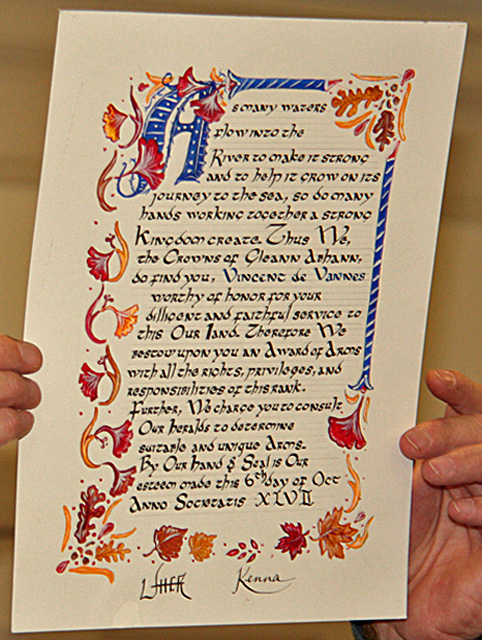 As many waters
flow into the
River to make it strong
and to help it grow on its
journey to the sea, so do many
hands working together a strong
Kingdom create. Thus We,
the Crowns of Gleann Abhann,
do find you, Vincent de Vannes
worthy of honor for your
diligent and faithful service to
this Our land. Therefore We
bestow upon you an Award of Arms
with all the rights, privileges, and
responsibilities of this rank.
Further, We charge you to consult
Our heralds to determine
suitable and unique Arms.
By Our hand & Seal is Our
esteem made this 6th day of Oct
Anno Societatis XLVII
Kenna